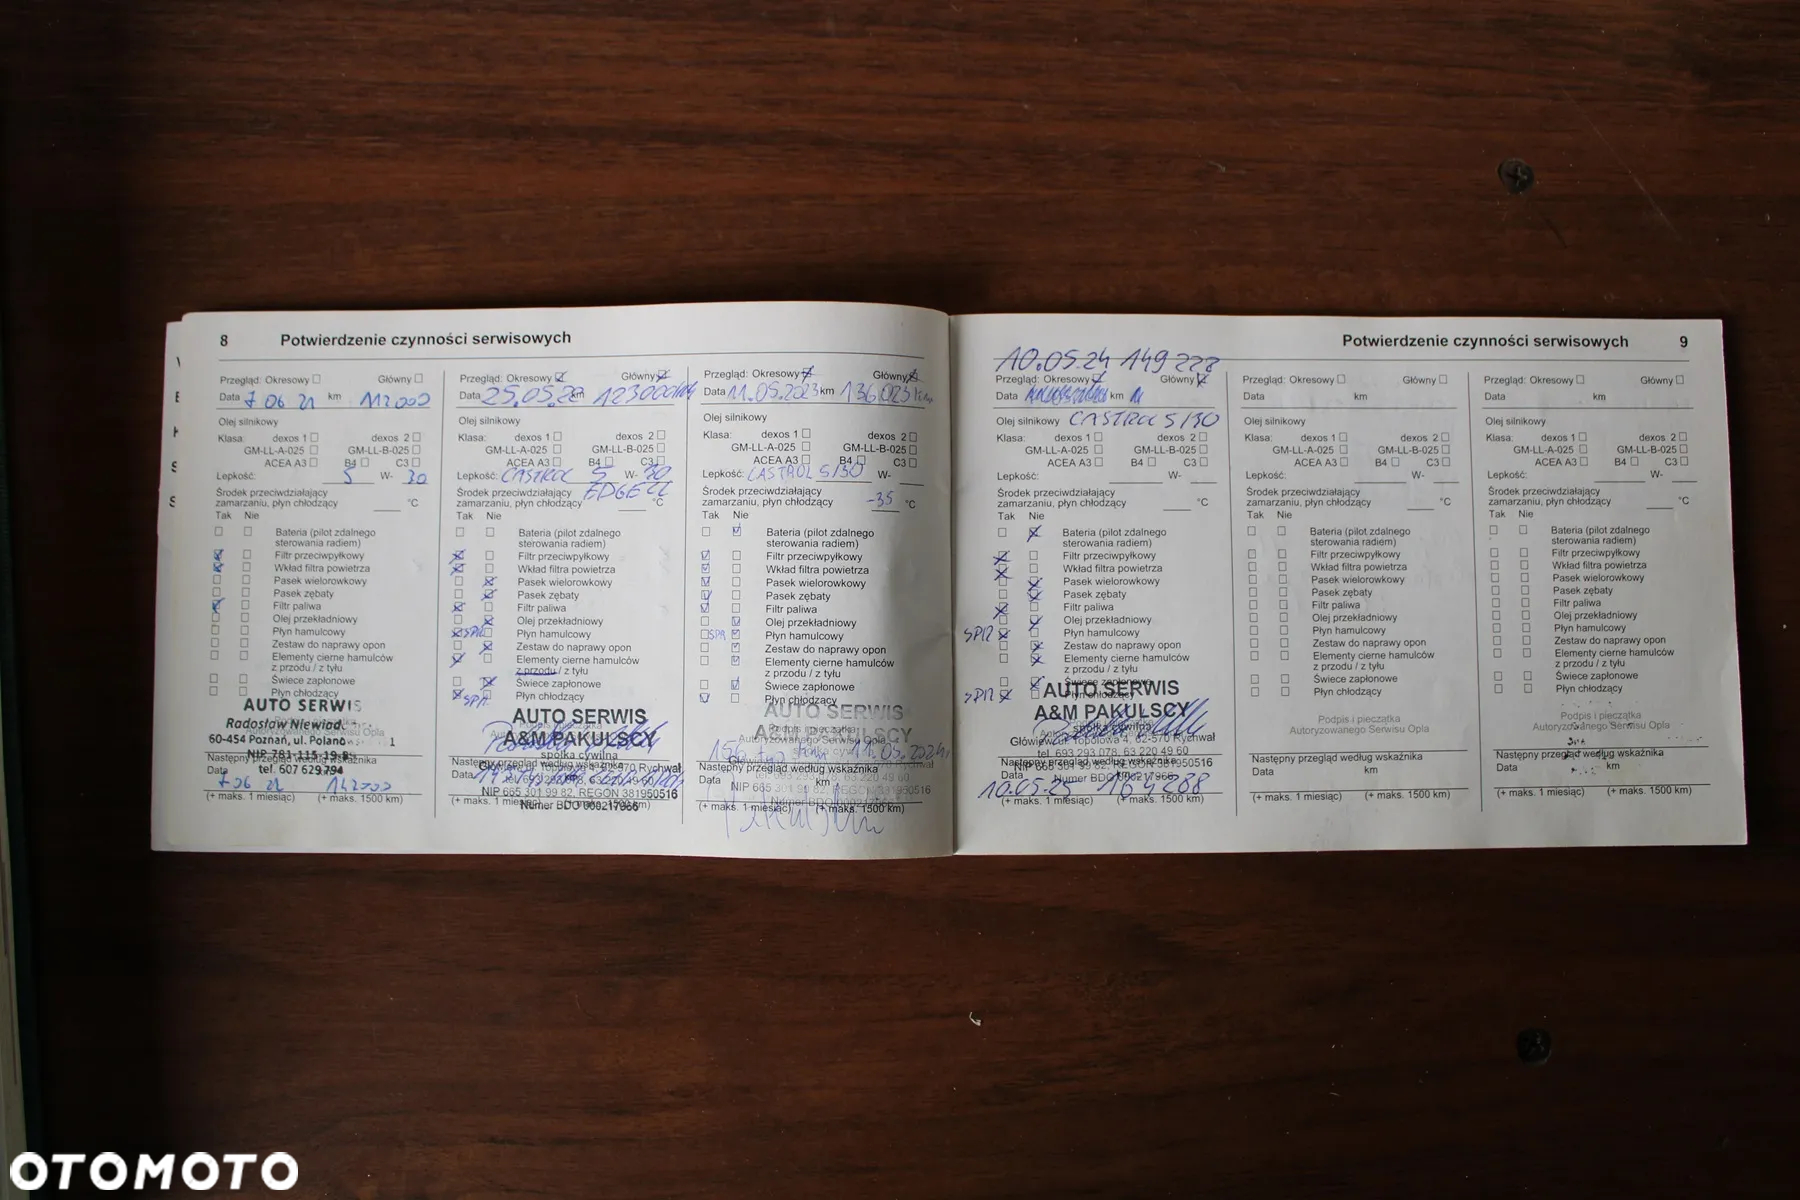 8 Potwierdzenie czynności serwisowych
Przegląd: Okresowy Główny
Data 7 06 21 km 112000
Olej silnikowy
Klasa: dexos 1 dexos 2
GM-LL-A-025 GM-LL-B-025
ACEA A3 B4 C3
Lepkość: 5 W- 30
Środek przeciwdziałający
zamarzaniu, płyn chłodzący °C
Tak Nie
Bateria (pilot zdalnego
sterowania radiem)
Filtr przeciwpyłkowy
Wkład filtra powietrza
Pasek wielorowkowy
Pasek zębaty
Filtr paliwa
Olej przekładniowy
Płyn hamulcowy
Zestaw do naprawy opon
Elementy cierne hamulców
z przodu / z tyłu
Świece zapłonowe
Płyn chłodzący
AUTO SERWIS
Radosław Niewiad.
60-454 Poznań, ul. Polano 1
NIP 781-115-19-8
Następny przegląd według wskaźnika
tel. 607 629 794
Data 7 06 21 142000
(+ maks. 1 miesiąc) (+ maks. 1500 km)
Przegląd: Okresowy Główny
Data 25.05.22 km 123000
Olej silnikowy
Klasa: dexos 1 dexos 2
GM-LL-A-025 GM-LL-B-025
ACEA A3 B4 C3
Lepkość: CASTROL 5 W- 30
EDGE LL
Środek przeciwdziałający
zamarzaniu, płyn chłodzący °C
Tak Nie
Bateria (pilot zdalnego
sterowania radiem)
Filtr przeciwpyłkowy
Wkład filtra powietrza
Pasek wielorowkowy
Pasek zębaty
Filtr paliwa
Olej przekładniowy
SPR Płyn hamulcowy
Zestaw do naprawy opon
Elementy cierne hamulców
z przodu / z tyłu
Świece zapłonowe
SPR Płyn chłodzący
AUTO SERWIS
A&M PAKULSCY
spółka cywilna
Następny przegląd według wskaźnika
Data
NIP 665 301 99 82, REGON 381950516
(+ maks. 1 miesiąc) (+ maks. 1500 km)
Numer BDO 000217966
Przegląd: Okresowy Główny
Data 11.05.2023 km 136.023 km
Olej silnikowy
Klasa: dexos 1 dexos 2
GM-LL-A-025 GM-LL-B-025
ACEA A3 B4 C3
Lepkość: CASTROL 5/30 W-
Środek przeciwdziałający
zamarzaniu, płyn chłodzący -35 °C
Tak Nie
Bateria (pilot zdalnego
sterowania radiem)
Filtr przeciwpyłkowy
Wkład filtra powietrza
Pasek wielorowkowy
Pasek zębaty
Filtr paliwa
Olej przekładniowy
SPR Płyn hamulcowy
Zestaw do naprawy opon
Elementy cierne hamulców
z przodu / z tyłu
Świece zapłonowe
Płyn chłodzący
AUTO SERWIS
Podpis i pieczątka
Autoryzowanego Serwisu Opla
Następny przegląd według wskaźnika
Data km
NIP 665 301 99 82, REGON 381950516
(+ maks. 1 miesiąc) (+ maks. 1500 km)
Potwierdzenie czynności serwisowych 9
10.05.24 149 228
Przegląd: Okresowy Główny
Data km
Olej silnikowy CASTROL 5/30
Klasa: dexos 1 dexos 2
GM-LL-A-025 GM-LL-B-025
ACEA A3 B4 C3
Lepkość: W-
Środek przeciwdziałający
zamarzaniu, płyn chłodzący °C
Tak Nie
Bateria (pilot zdalnego
sterowania radiem)
Filtr przeciwpyłkowy
Wkład filtra powietrza
Pasek wielorowkowy
Pasek zębaty
Filtr paliwa
Olej przekładniowy
SPR Płyn hamulcowy
Zestaw do naprawy opon
Elementy cierne hamulców
z przodu / z tyłu
Świece zapłonowe
SPR Płyn chłodzący
AUTO SERWIS
A&M PAKULSCY
Głowiew, ul. Topolowa 4, 62-570 Rychwał
tel. 693 293 078, 63 220 49 60
Następny przegląd według wskaźnika
NIP 665 301 99 82, REGON 381950516
Numer BDO 000217966
10.05.25 164288
(+ maks. 1 miesiąc) (+ maks. 1500 km)
Przegląd: Okresowy Główny
Data km
Olej silnikowy
Klasa: dexos 1 dexos 2
GM-LL-A-025 GM-LL-B-025
ACEA A3 B4 C3
Lepkość: W-
Środek przeciwdziałający
zamarzaniu, płyn chłodzący °C
Tak Nie
Bateria (pilot zdalnego
sterowania radiem)
Filtr przeciwpyłkowy
Wkład filtra powietrza
Pasek wielorowkowy
Pasek zębaty
Filtr paliwa
Olej przekładniowy
Płyn hamulcowy
Zestaw do naprawy opon
Elementy cierne hamulców
z przodu / z tyłu
Świece zapłonowe
Płyn chłodzący
Podpis i pieczątka
Autoryzowanego Serwisu Opla
Następny przegląd według wskaźnika
Data km
(+ maks. 1 miesiąc) (+ maks. 1500 km)
Przegląd: Okresowy Główny
Data km
Olej silnikowy
Klasa: dexos 1 dexos 2
GM-LL-A-025 GM-LL-B-025
ACEA A3 B4 C3
Lepkość: W-
Środek przeciwdziałający
zamarzaniu, płyn chłodzący °C
Tak Nie
Bateria (pilot zdalnego
sterowania radiem)
Filtr przeciwpyłkowy
Wkład filtra powietrza
Pasek wielorowkowy
Pasek zębaty
Filtr paliwa
Olej przekładniowy
Płyn hamulcowy
Zestaw do naprawy opon
Elementy cierne hamulców
z przodu / z tyłu
Świece zapłonowe
Płyn chłodzący
Podpis i pieczątka
Autoryzowanego Serwisu Opla
Następny przegląd według wskaźnika
Data km
(+ maks. 1 miesiąc) (+ maks. 1500 km)
OTOMOTO